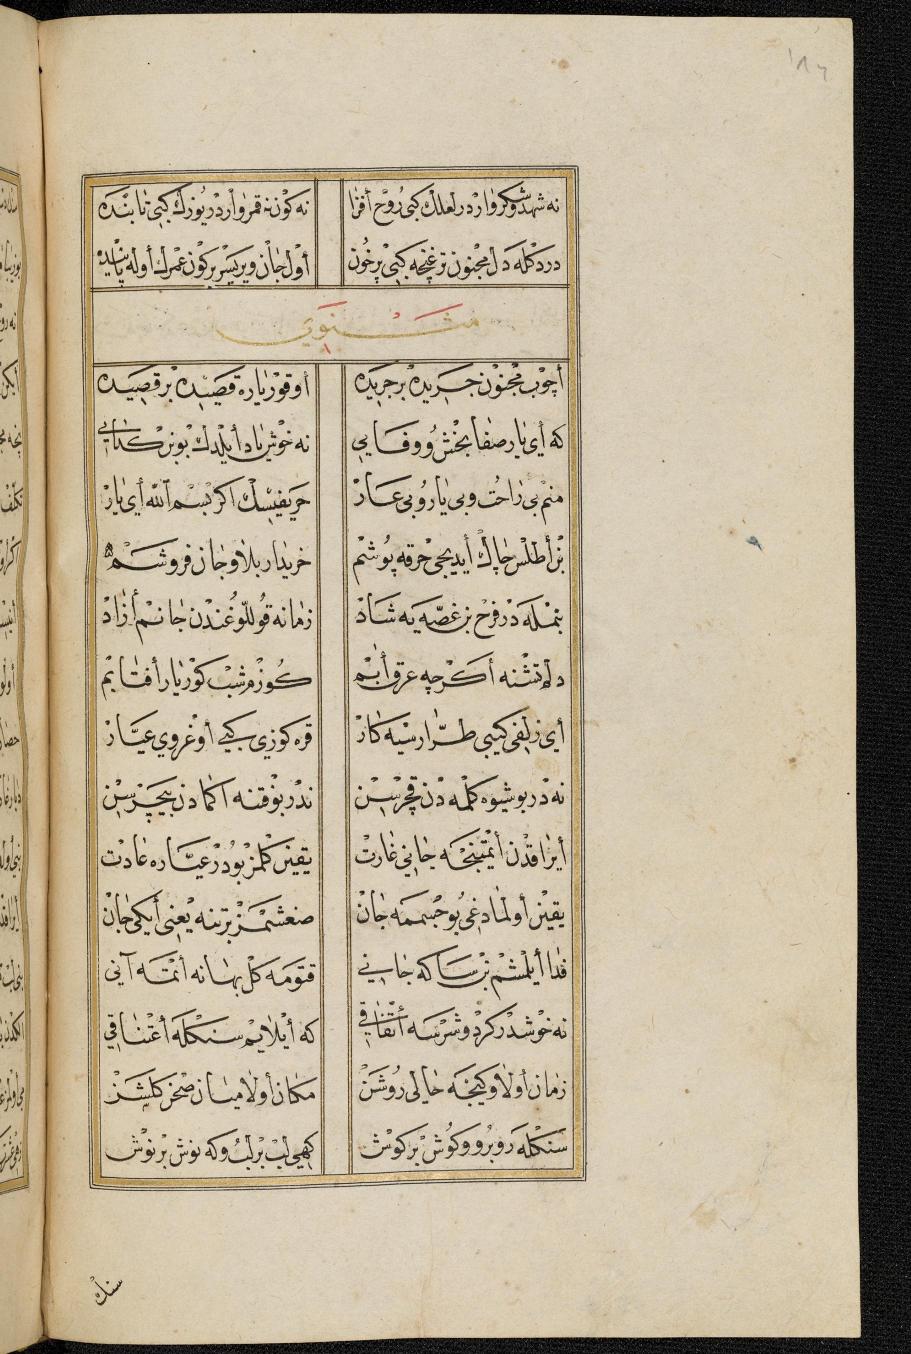 نه شهد شکروار در لعلك كبی رُوح أفزا نه كون نه قمروار در يُوزك كبی تابنده
درد كله دل مجنون تر غنچه كبی پرخون أول جان ويريسر بر كون عمرك أوله پاينده
مثنوی
أچوب مجنون جريده بر جريده أوقور ياره قصيده بر قصيده
كه أی يار صفا بخش و وفايی نه خوش ياد أيلدك بو بر كتابی
منم بی راحت و بی يار و بی عار حريفيسك اكر بسم الله أی يار
بن أطلس چاك أيديجی خرقه پوشم خريدار بلا و جان فروشم
بنمله در فرح بن غصّه يه شاد زمانه قوللوغندن جانم أزاد
دلم تشنه أكرچه عرق أبم كوزم شب كور يار أفتابم
أی زلفی كيبی طرّار سيه كار قره كوزی كبی أوغروی عيّار
نه در بو شيوه كلمه دن قچرسن ندر بو فتنه اكمادن بيچرسن
أيراقدن أيتمنجه جانی غارت يقين كلمز بودر عيّاره عادت
يقين أولمادغی بو جسممه جان صغشمز بر تنه يعنی أيكی جان
فدا أيلمشم بن ساكه جانی قتومه كل بهانه أتمه آنی
نه خوشدر كر دوشرسه أتفاقی كه أيلايم سنكله أعتناقی
زمان أولا و كيجه خالی روشن مكان أولا ميان صحن كلشن
سنكله رو برو و كوش بر كوش كهی لب بر لب و كه نوش بر نوش
سنك